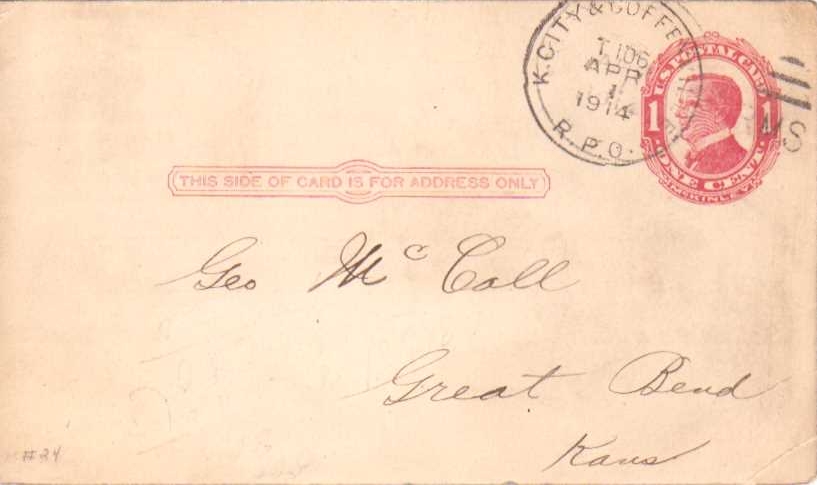 K.CITY & COFFE
T.106
APR
1
1914
R.P.O.
RMS
U.S. POSTAL CARD
1 1
ONE CENT
McKINLEY
THIS SIDE OF CARD IS FOR ADDRESS ONLY
Geo Mc Call
Great Bend
Kans
#24